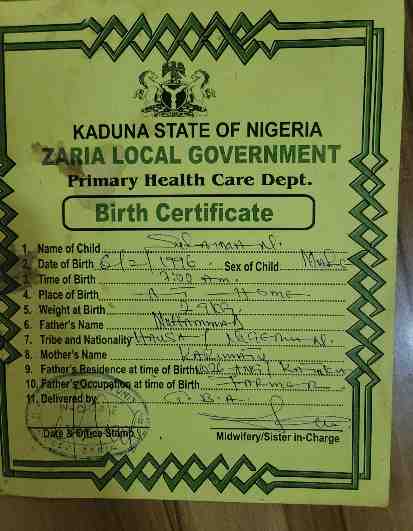 KADUNA STATE OF NIGERIA
ZARIA LOCAL GOVERNMENT
Primary Health Care Dept.
Birth Certificate
1. Name of Child
2. Date of Birth 6/2/1996 Sex of Child Male
3. Time of Birth 7:00 Am.
4. Place of Birth AT HOME
5. Weight at Birth 2.9kg
6. Father's Name Muhammad
7. Tribe and Nationality HAUSA / NIGERIAN.
8. Mother's Name
9. Father's Residence at time of Birth
10. Father's Occupation at time of Birth FARMER
11. Delivered by T.B.A.
Date & Office Stamp
Midwifery/Sister in-Charge